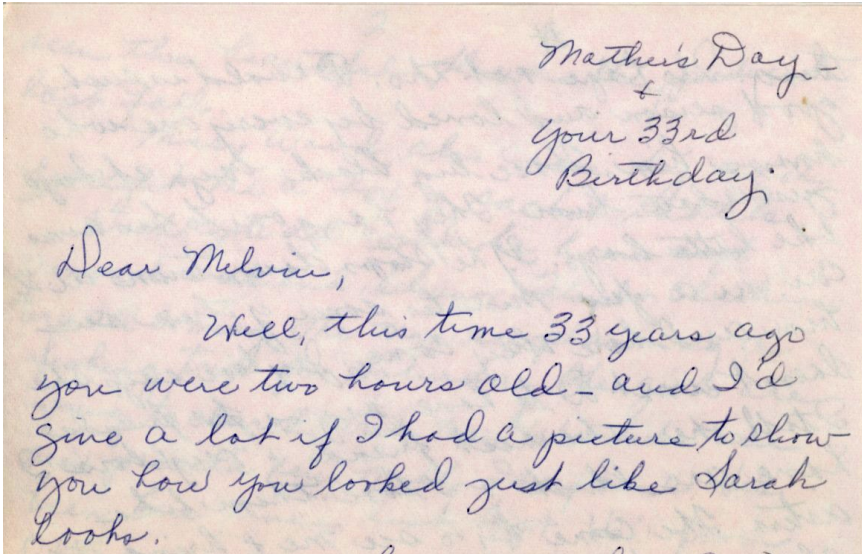 Mother's Day -
+
your 33rd
Birthday.
Dear Melvin,
Well, this time 33 years ago
you were two hours old - and I'd
give a lot if I had a picture to show
you how you looked just like Sarah
looks.